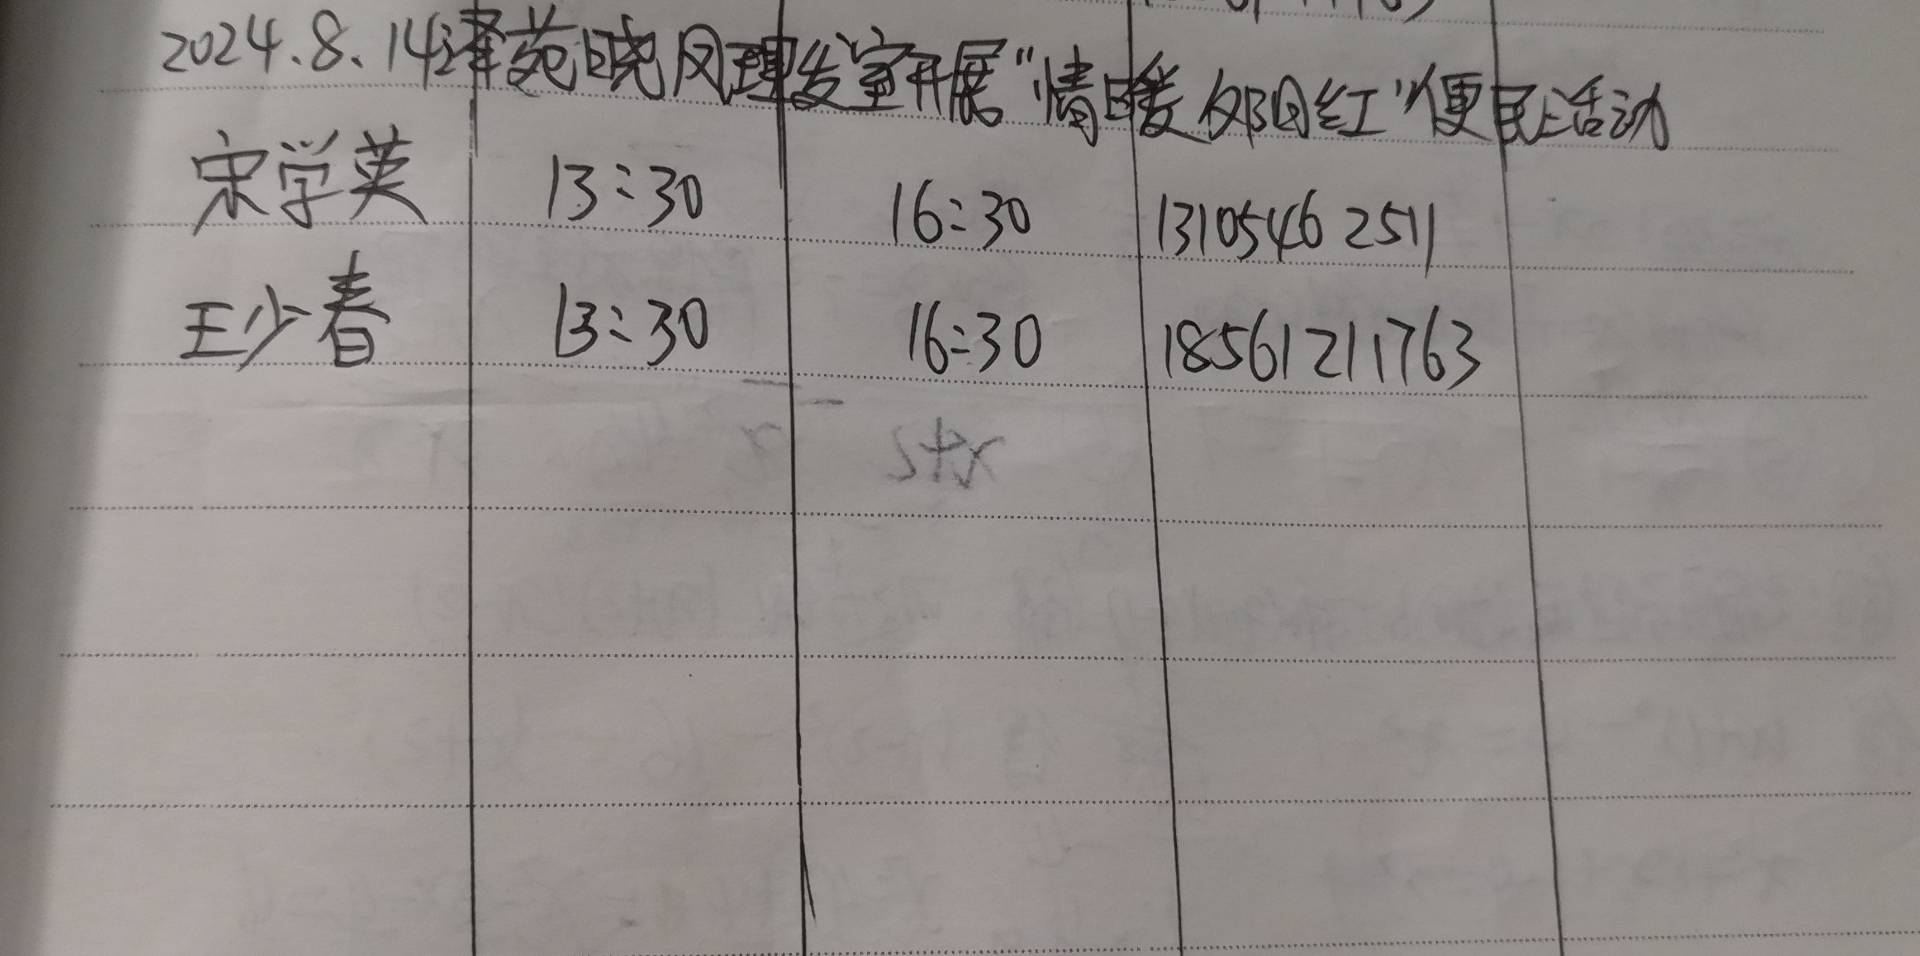 2024.8.14泽苑晓风理发室开展“情暖夕阳红”便民活动
宋学英 13:30 16:30 13105462511
王少春 13:30 16:30 18561211763